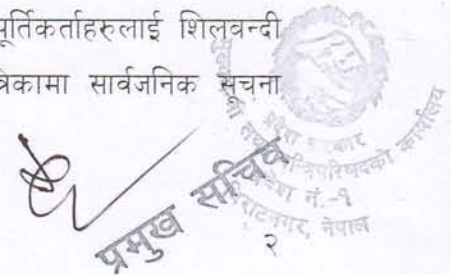 पूर्तिकर्ताहरुलाई शिलवन्दी
त्रिकामा सार्वजनिक सूचना
प्रदेश सरकार
मन्त्रिपरिषदको कार्यालय
प्रदेश नं.-१
विराटनगर, नेपाल
प्रमुख सचिव
२